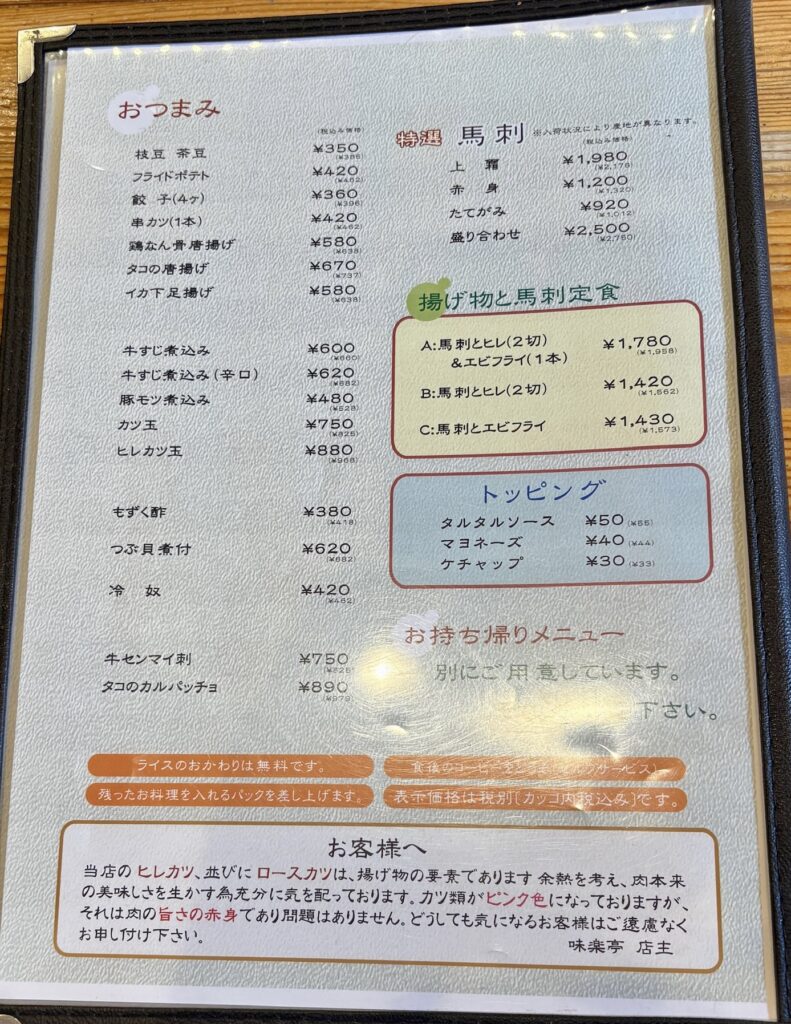 おつまみ
(税込み価格)
枝豆 茶豆 ¥350 (¥385)
フライドポテト ¥420 (¥462)
餃子(4ヶ) ¥360 (¥396)
串カツ(1本) ¥420 (¥462)
鶏なん骨唐揚げ ¥580 (¥638)
タコの唐揚げ ¥670 (¥737)
イカ下足揚げ ¥580 (¥638)
牛すじ煮込み ¥600 (¥660)
牛すじ煮込み(辛口) ¥620 (¥682)
豚モツ煮込み ¥480 (¥528)
カツ玉 ¥750 (¥825)
ヒレカツ玉 ¥880 (¥968)
もずく酢 ¥380 (¥418)
つぶ貝煮付 ¥620 (¥682)
冷 奴 ¥420 (¥462)
牛センマイ刺 ¥750 (¥825)
タコのカルパッチョ ¥890 (¥979)
特選 馬刺 ※入荷状況により産地が異なります。
(税込み価格)
上 霜 ¥1,980 (¥2,178)
赤 身 ¥1,200 (¥1,320)
たてがみ ¥920 (¥1,012)
盛り合わせ ¥2,500 (¥2,750)
揚げ物と馬刺定食
A:馬刺とヒレ(2切)
&エビフライ(1本) ¥1,780 (¥1,958)
B:馬刺とヒレ(2切) ¥1,420 (¥1,562)
C:馬刺とエビフライ ¥1,430 (¥1,573)
トッピング
タルタルソース ¥50 (¥55)
マヨネーズ ¥40 (¥44)
ケチャップ ¥30 (¥33)
お持ち帰りメニュー
別にご用意しています。
下さい。
ライスのおかわりは無料です。
食後のコーヒーを サービス)
残ったお料理を入れるパックを差し上げます。
表示価格は税別(カッコ内税込み)です。
お客様へ
当店の ヒレカツ、並びに ロースカツは、揚げ物の要素であります 余熱を考え、肉本来
の美味しさを生かす為充分に気を配っております。カツ類がピンク色になっておりますが、
それは肉の旨さの赤身であり問題はありません。どうしても気になるお客様はご遠慮なく
お申し付け下さい。
味楽亭 店主